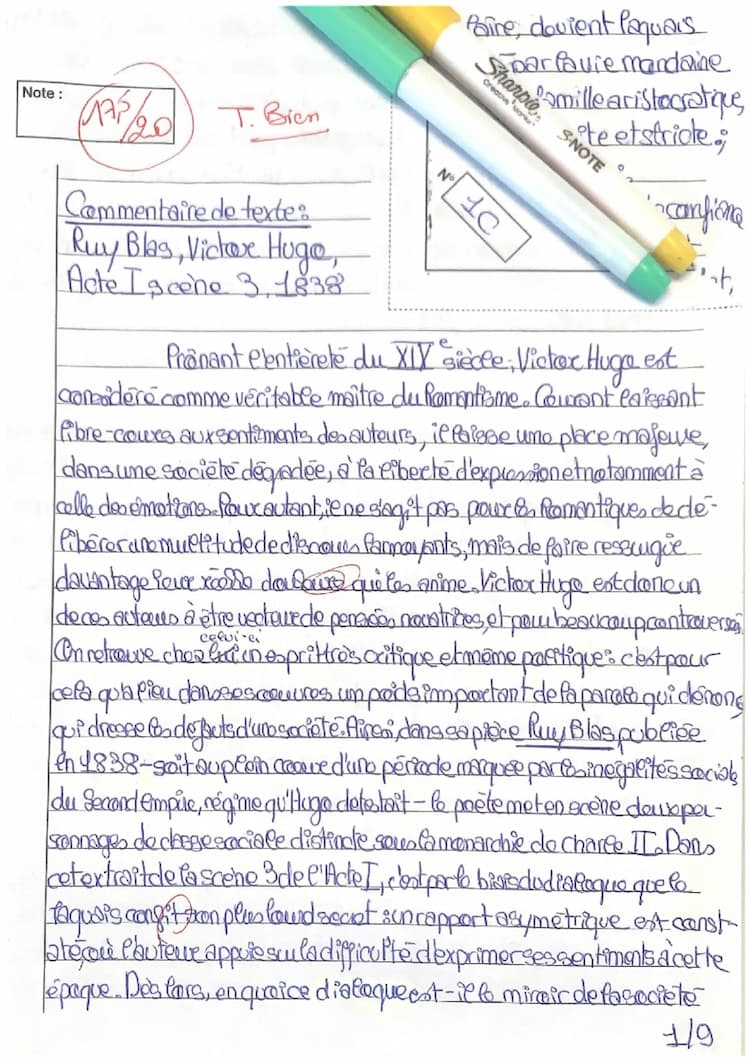 Faire, devient laquais
par la vie mondaine
famille aristocratique,
ete et stricte ;
Sharpie
CREATIVE MARKER
S·NOTE
Note :
17,5/20
T. Bien
N°
1C
confiona
nt,
Commentaire de texte :
Ruy Blas, Victor Hugo,
Acte I scène 3, 1838
Prônant l'entièreté du XIXe siècle, Victor Hugo est
considéré comme véritable maître du Romantisme. Courant laissant
libre-cours aux sentiments des auteurs, il laisse une place majeure,
dans une société dégradée, à la liberté d'expression et notamment à
celle des émotions. Pour autant, il ne s'agit pas pour les Romantiques de dé-
libérer une multitude de discours larmoyants, mais de faire
davantage qui les anime. Victor Hugo est donc un
de ces auteurs à être vecteur de pensées novatrices, et pour beaucoup controversé
On retrouve chez celui-ci un esprit très critique et même politique : c'est pour
cela qu'a lieu dans ses oeuvres un poids important de la parole qui dénonc
qui dresse les défauts d'une société. Ainsi, dans sa pièce Ruy Blas publiée
en 1838 - soit au plein coeur d'une période marquée par les inégalités social
du Second Empire, régime qu'Hugo détestait - le poète met en scène deux per-
sonnages de classe sociale distincte sous la monarchie de Charle II. Dans
cet extrait de la scène 3 de l'Acte I, c'est par le biais du dialogue que le
laquais confit son plus lourd secret : un rapport asymétrique est const-
até où l'auteur appuie sur la difficulté d'exprimer ses sentiments à cette
époque. Dès lors, en quoi ce dialogue est-il le miroir de la société
1/9